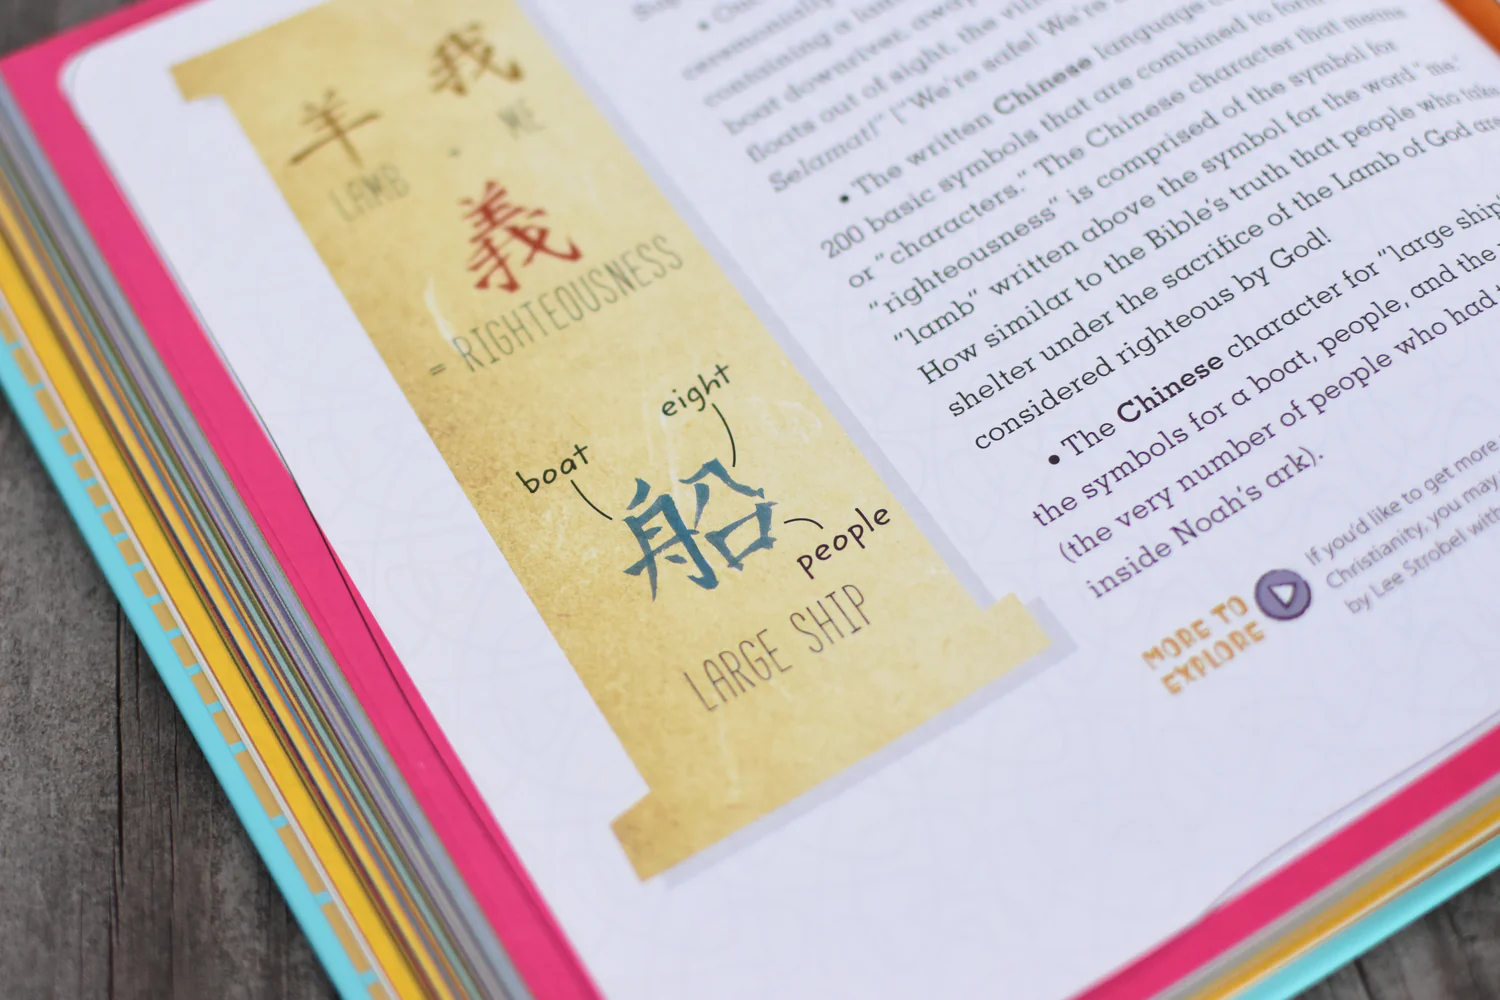 羊 我
LAMB + ME
義
= RIGHTEOUSNESS
eight
boat
船
people
LARGE SHIP
• Our
ceremonially
containing a lam
boat downriver, away
floats out of sight, the villa
Selamat!" ["We're safe! We're
• The written Chinese language
200 basic symbols that are combined to form
or "characters." The Chinese character that means
"righteousness" is comprised of the symbol for
"lamb" written above the symbol for the word "me."
How similar to the Bible's truth that people who take
shelter under the sacrifice of the Lamb of God are
considered righteous by God!
• The Chinese character for "large ship"
the symbols for a boat, people, and the
(the very number of people who had
inside Noah's ark).
MORE TO
EXPLORE
If you'd like to get more
Christianity, you may
by Lee Strobel with